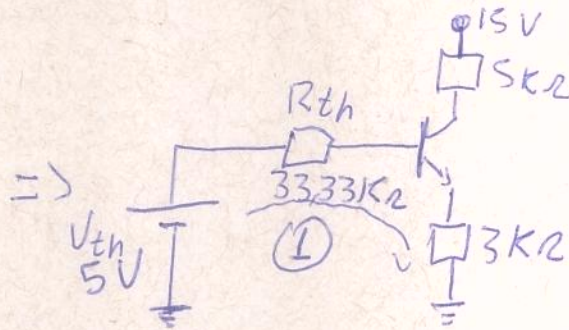 15V
5KΩ
Rth
=>
33.33KΩ
Vth
5V
1
3KΩ